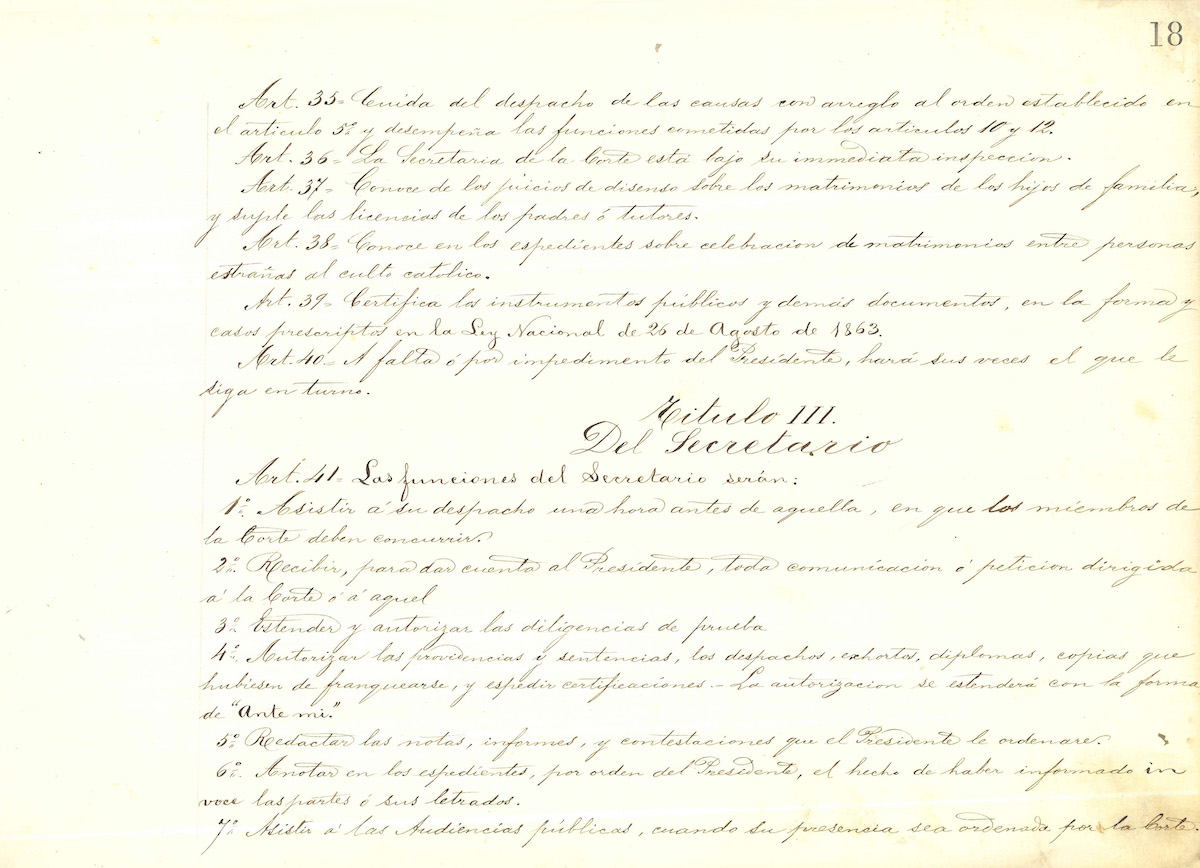 18
Art. 35= Cuida del despacho de las causas con arreglo al orden establecido en
el articulo 5º y desempeña las funciones cometidas por los articulos 10 y 12.
Art. 36= La Secretaria de la Corte está bajo su immediata inspeccion.
Art. 37= Conoce de los juicios de disenso sobre los matrimonios de los hijos de familia,
y suple las licencias de los padres ó tutores.
Art. 38= Conoce en los espedientes sobre celebracion de matrimonios entre personas
estrañas al culto católico.
Art. 39= Certifica los instrumentos públicos y demás documentos, en la forma y
casos prescriptos en la Ley Nacional de 26 de Agosto de 1863.
Art. 40= A falta ó por impedimento del Presidente, hará sus veces el que le
siga en turno.
Titulo III.
Del Secretario
Art. 41= Las funciones del Secretario serán:
1º. Asistir á su despacho una hora antes de aquella, en que los miembros de
la Corte deben concurrir.
2º. Recibir, para dar cuenta al Presidente, toda comunicacion ó peticion dirigida
á la Corte ó á aquel
3º. Estender y autorizar las diligencias de prueba
4º. Autorizar las providencias y sentencias, los despachos, exhortos, diplomas, copias que
hubiesen de franquearse, y espedir certificaciones.- La autorizacion se estenderá con la forma
de "Ante mi."
5º. Redactar las notas, informes, y contestaciones que el Presidente le ordenare.
6º. Anotar en los espedientes, por orden del Presidente, el hecho de haber informado in
voce las partes ó sus letrados.
7º. Asistir á las Audiencias públicas, cuando su presencia sea ordenada por la Corte.